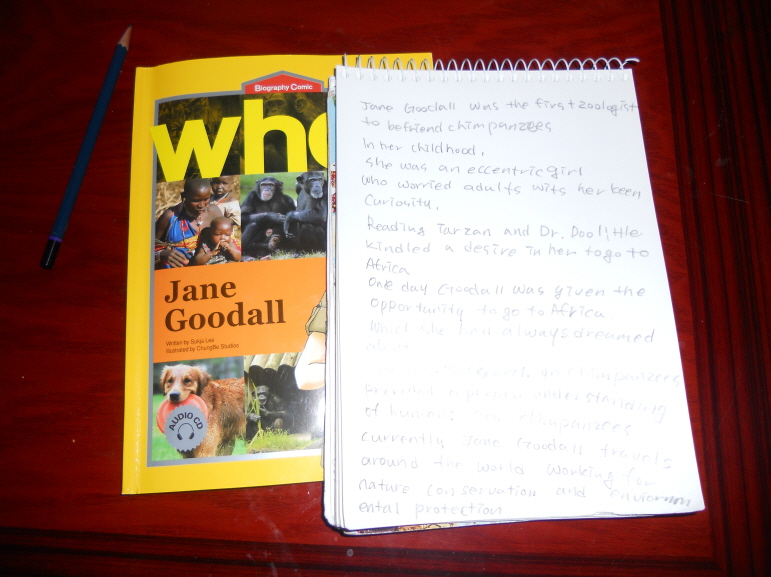 Biography Comic
who
Jane
Goodall
Written by Sukja Lee
Illustrated by ChungBe Studios
AUDIO CD
Jane Goodall was the first zoologist
to befriend chimpanzees
In her childhood,
she was an eccentric girl
who worried adults wits her been
Curiosity,
Reading Tarzan and Dr. Doolittle
kindled a desire in her to go to
Africa
One day Goodall was given the
opportunity to go to Africa
Which she had always dreamed
on chimpanzees
understanding
of humans chimpanzees
Currently Jane Goodall travels
around the world working for
nature conservation and enviornm
ental protection